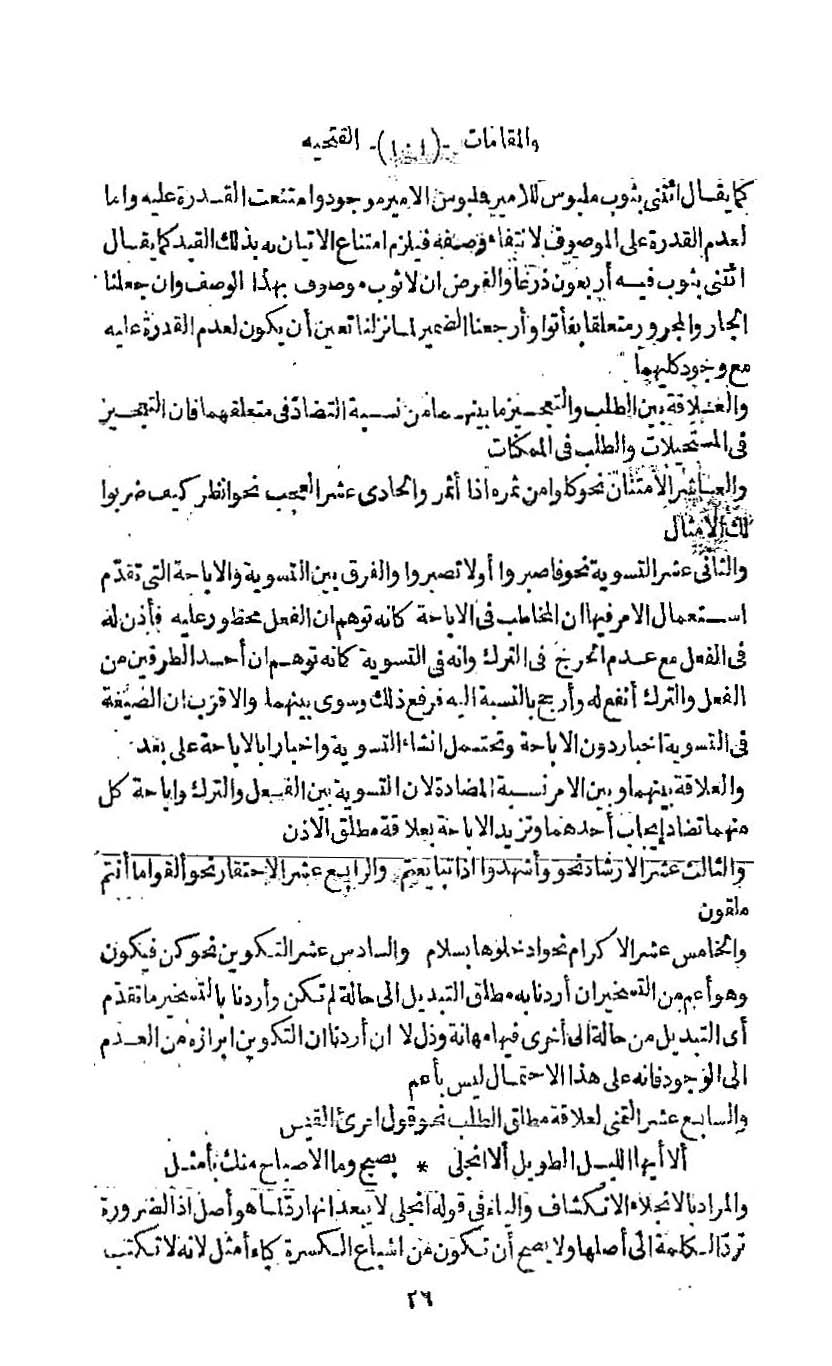 والمقامات -(١٠١)- الفتحيه
كما يقال ائتنى بثوب ملبوس للامير فلبوس الامير موجود وامتنعت القدرة عليه واما
لعدم القدرة على الموصوف لانتفاء وصفه فيلزم امتناع الاتيان به بذلك القيد كما يقال
ائتنى بثوب فيه أربعون ذرعا والفرض ان لا ثوب موصوف بهذا الوصف وان جعلنا
الجار والمجرور متعلقا بفأتوا وأرجعنا الضمير لما نزلنا تعين أن يكون لعدم القدرة عليه
مع وجود كليهما
والعلاقة بين الطلب والتعجيز ما بينهما من نسبة التضاد فى متعلقهما فان التعجيز
فى المستحيلات والطلب فى الممكنات
والعاشر الامتنان نحو كلوا من ثمره اذا أثمر والحادى عشر العجب نحو انظر كيف ضربوا
لك الامثال
والثانى عشر التسوية نحو فاصبروا أو لا تصبروا والفرق بين التسوية والاباحة التى تقدّم
استعمال الامر فيها ان المخاطب فى الاباحة كانه توهم ان الفعل محظور عليه فأذن له
فى الفعل مع عدم الحرج فى الترك وانه فى التسوية كانه توهم ان أحد الطرفين من
الفعل والترك أنفع له وأرجح بالنسبة اليه فرفع ذلك وسوى بينهما والاقرب ان الصيغة
فى التسوية اخبار دون الاباحة وتحتمل انشاء التسوية واخبارا بالاباحة على بعد
والعلاقة بينهما وبين الامر نسبة المضادة لان التسوية بين الفعل والترك واباحة كل
منهما تضاد إيجاب أحدهما وتزيد الاباحة بعلاقة مطلق الاذن
والثالث عشر الارشاد نحو وأشهدوا اذا تبايعتم والرابع عشر الاحتقار نحو ألقوا ما أنتم
ملقون
والخامس عشر الاكرام نحو ادخلوها بسلام والسادس عشر التكوين نحو كن فيكون
وهو أعم من التسخير ان أردنا به مطلق التبديل الى حالة لم تكن وأردنا بالتسخير ما تقدّم
أى التبديل من حالة الى أخرى فيها مهانة وذل لا ان أردنا ان التكوين ابرازه من العدم
الى الوجود فانه على هذا الاحتمال ليس بأعم
والسابع عشر التمنى لعلاقة مطلق الطلب نحو قول امرئ القيس
ألا أيها الليل الطويل ألا انجلى * بصبح وما الاصباح منك بأمثل
والمراد بالانجلاء الانكشاف والياء فى قوله انجلى لا يبعد انها ردّ لما هو أصل اذ الضرورة
تردّ الكلمة الى أصلها ولا يصح أن تكون من اشباع الكسرة كياء أمثل لانه لا تكتب
٢٦